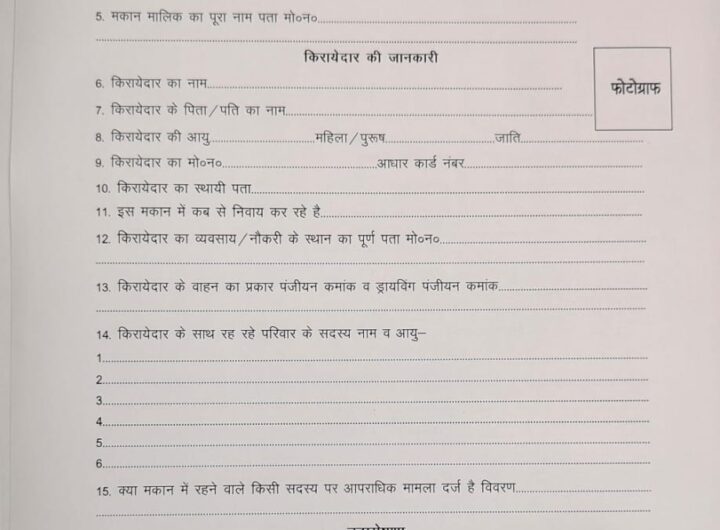 5. मकान मालिक का पूरा नाम पता मो०न०
किरायेदार की जानकारी
फोटोग्राफ
6. किरायेदार का नाम
7. किरायेदार के पिता/पति का नाम
8. किरायेदार की आयु महिला/पुरूष जाति
9. किरायेदार का मो०न० आधार कार्ड नंबर
10. किरायेदार का स्थायी पता
11. इस मकान में कब से निवाय कर रहे है
12. किरायेदार का व्यवसाय/नौकरी के स्थान का पूर्ण पता मो०न०
13. किरायेदार के वाहन का प्रकार पंजीयन कमांक व ड्रायविंग पंजीयन कमांक
14. किरायेदार के साथ रह रहे परिवार के सदस्य नाम व आयु–
1.
2.
3.
4.
5.
6.
15. क्या मकान में रहने वाले किसी सदस्य पर आपराधिक मामला दर्ज है विवरण